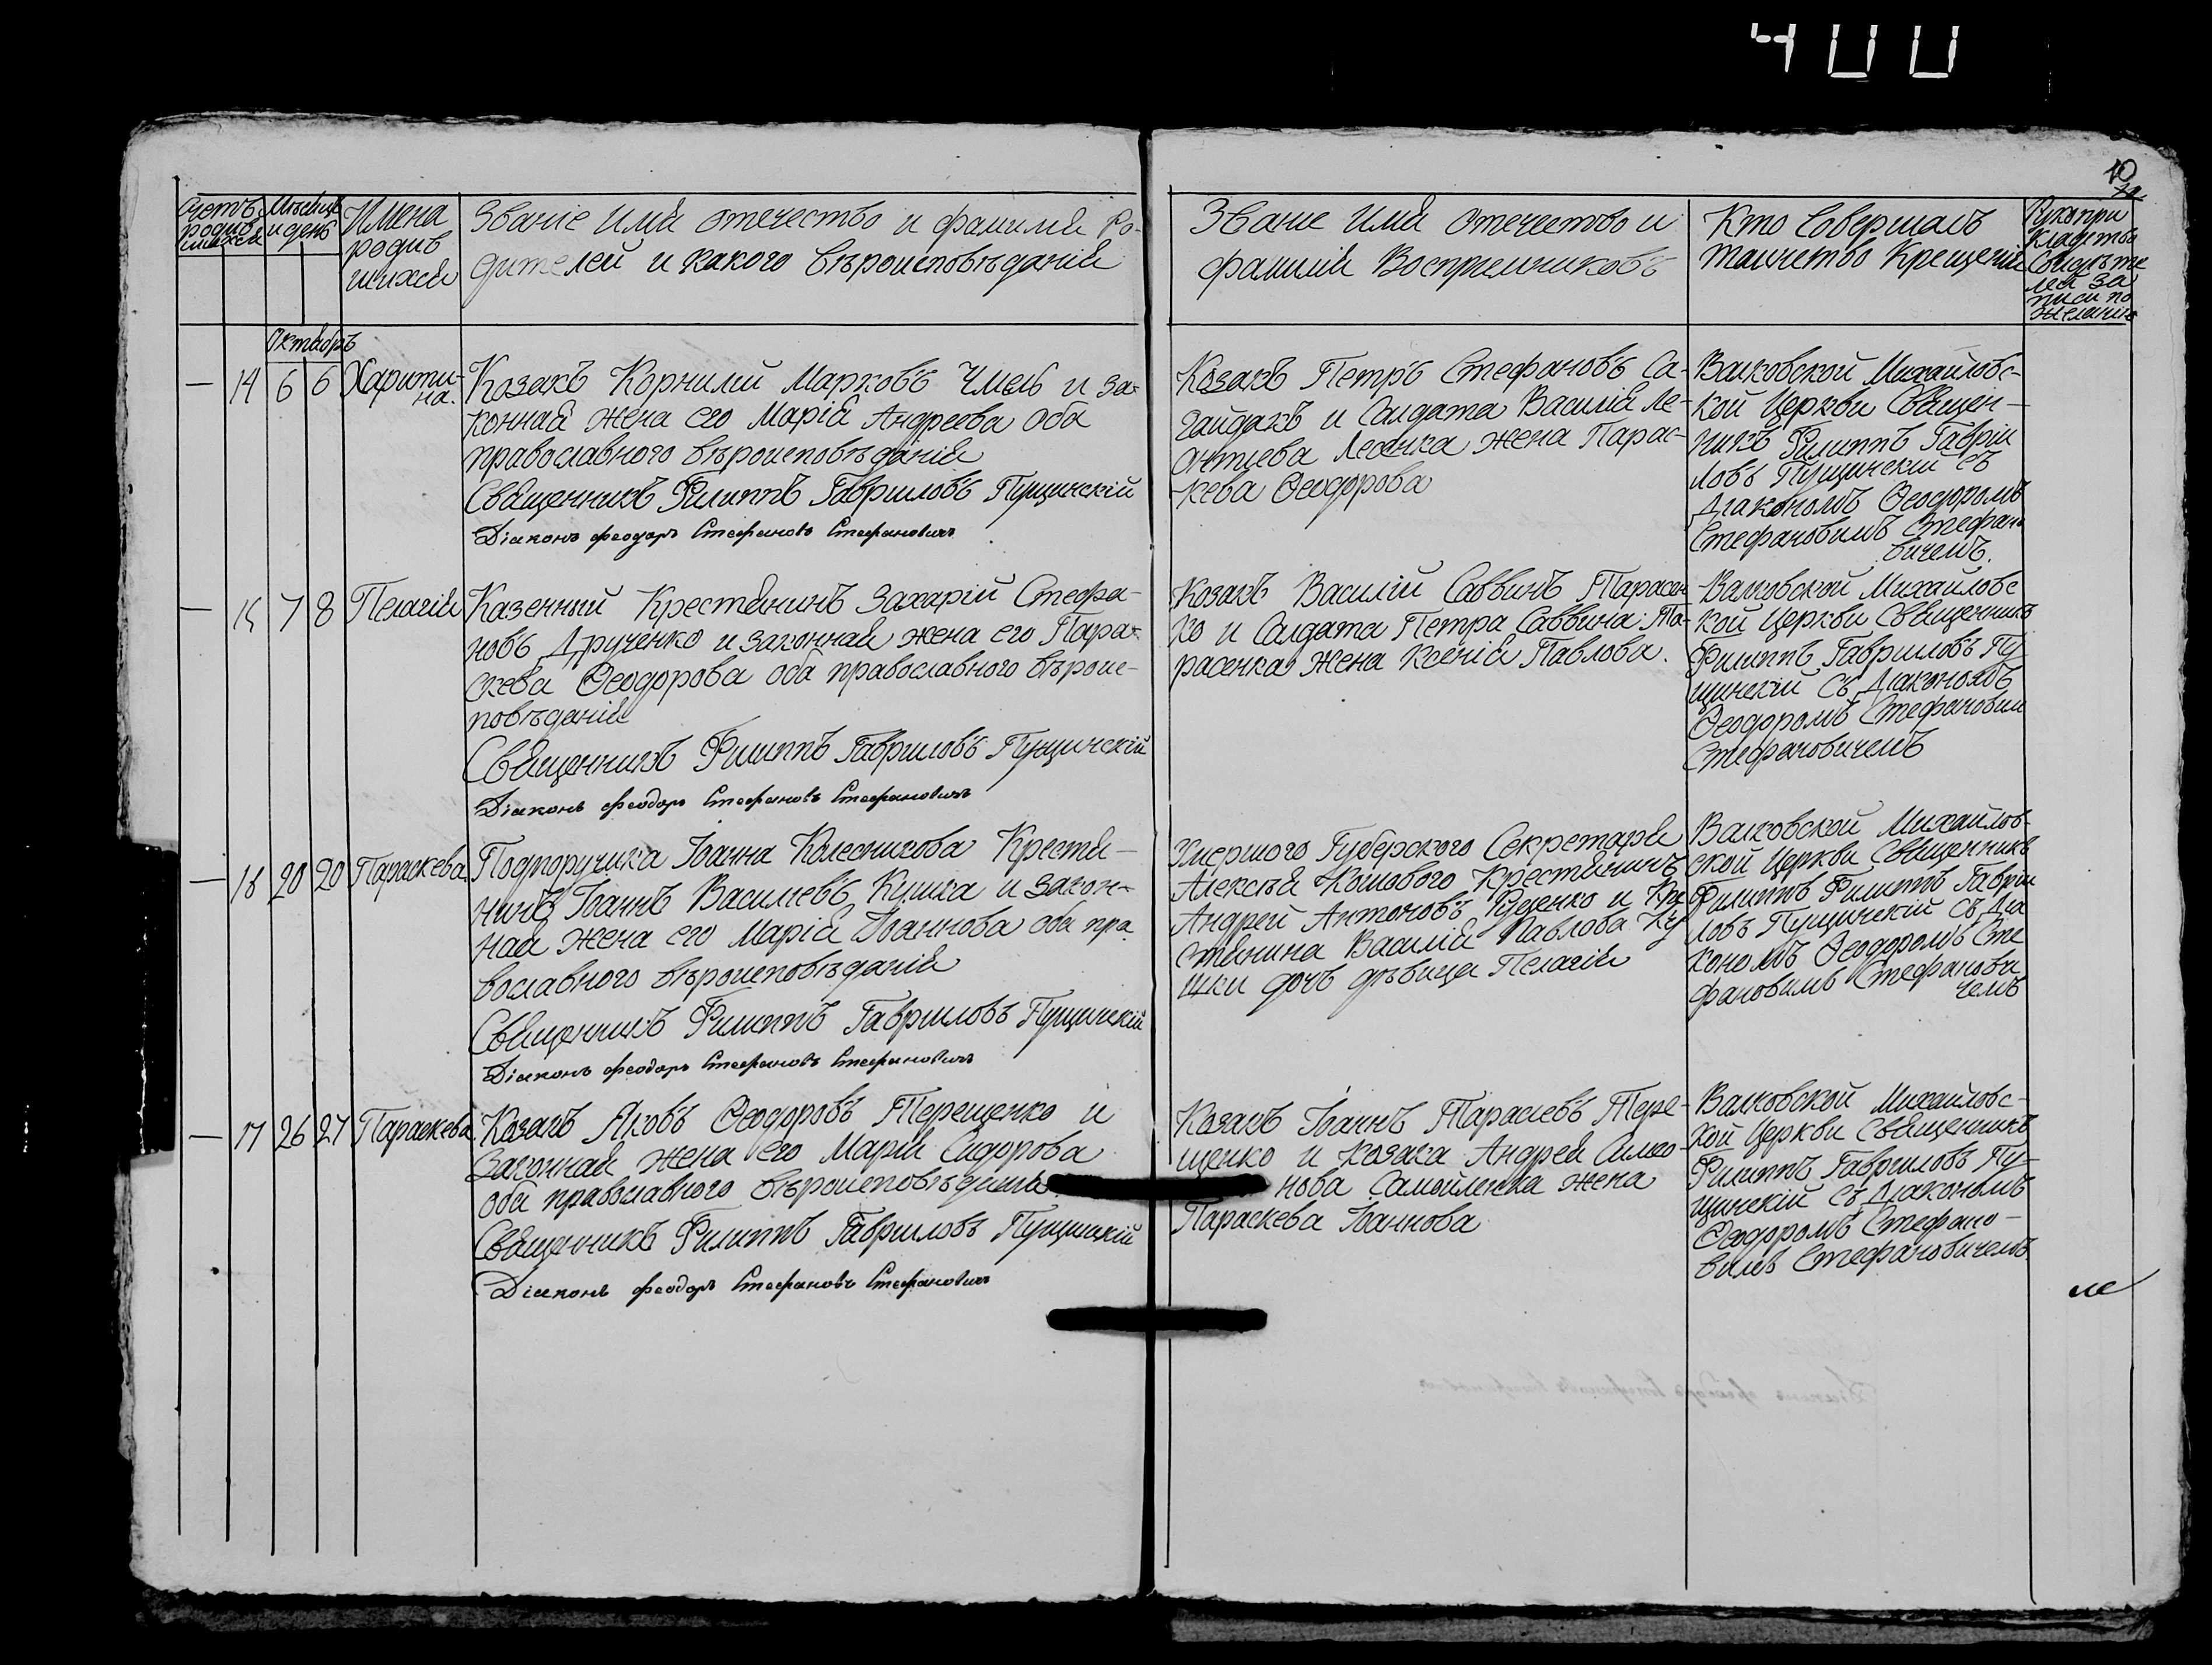 400
10
Счетъ родив шихся
Мѣсяцъ и день
Имена родив шихся
Званіе Имя отечество и фамилія Ро-
дителей и какого вѣроисповѣданія
Званіе Имя отечество и
фамилія Воспріемниковъ
Кто Совершалъ
таинство Крещенія
Рукопри
кладство
Свидѣте
лей за
писи по
желанію
Октябрь
— 14 6 6 Харити-
на.
Козакъ Корнилій Марковъ Чмель и за-
конная жена его Марія Андреева оба
православного вѣроисповѣданія
Священникъ Филиппъ Гавриловъ Пущинскій
Діаконъ Феодоръ Стефановъ Стефановичъ
Козакъ Петръ Стефановъ Са-
гайдакъ и Солдата Василія Ле-
онтиева Лесенка жена Парас-
кева Ѳеодорова
Валковской Михайловс-
кой Церкви Священ-
никъ Филиппъ Гаврии
ловъ Пущинскій съ
Діакономъ Ѳеодоромъ
Стефановимъ Стефано
вичемъ.
— 15 7 8 Пелагія
Казенный Крестянинъ Захарій Стефа-
новъ Друченко и законная жена его Пара-
скева Ѳеодорова оба православного вѣроис-
повѣданія
Священникъ Филиппъ Гавриловъ Пущинскій
Діаконъ Феодоръ Стефановъ Стефановичъ
Козакъ Василій Саввинъ Тарасен
ко и Солдата Петра Саввина Та-
расенка жена Ксенія Павлова.
Валковской Михайловс
кой Церкви Священникъ
Филиппъ Гавриловъ Пу
щинскій съ Діакономъ
Ѳеодоромъ Стефановим
Стефановичемъ
— 16 20 20 Параскева
Подпоручика Іоанна Колесникова Крестя-
нинъ Іоаннъ Василиевъ Кушка и закон-
ная жена его Марія Иваннова оба пра
вославного вѣроисповѣданія
Священникъ Филиппъ Гавриловъ Пущинскій
Діаконъ Феодоръ Стефановъ Стефановичъ
Умершого Губерского Секретаря
Алексѣя Кошового Крестянинъ
Андрей Антоновъ и Кре
стянина Василія Павлова Ку
шки дочъ дѣвица Пелагія
Валковской Михайлов-
ской Церкви Священникъ
Филиппъ Филиппъ Гаври
ловъ Пущинскій съ Діа
кономъ Ѳеодоромъ Сте
фановимъ Стефанови
чемъ
— 17 26 27 Параскева
Козакъ Яковъ Ѳеодоровъ Терещенко и
законная жена его Марія Сидорова
оба православного вѣроисповѣданія
Священникъ Филиппъ Гавриловъ Пущинскій
Діаконъ Феодоръ Стефановъ Стефановичъ
Козакъ Іоаннъ Тарасиевъ Тере-
щенко и Козака Андрея Симо-
нова Самойленка жена
Параскева Іоаннова
Валковской Михайловс-
кой Церкви Священникъ
Филиппъ Гавриловъ Пу-
щинскій съ Діакономъ
Ѳеодоромъ Стефано-
вимъ Стефановичемъ